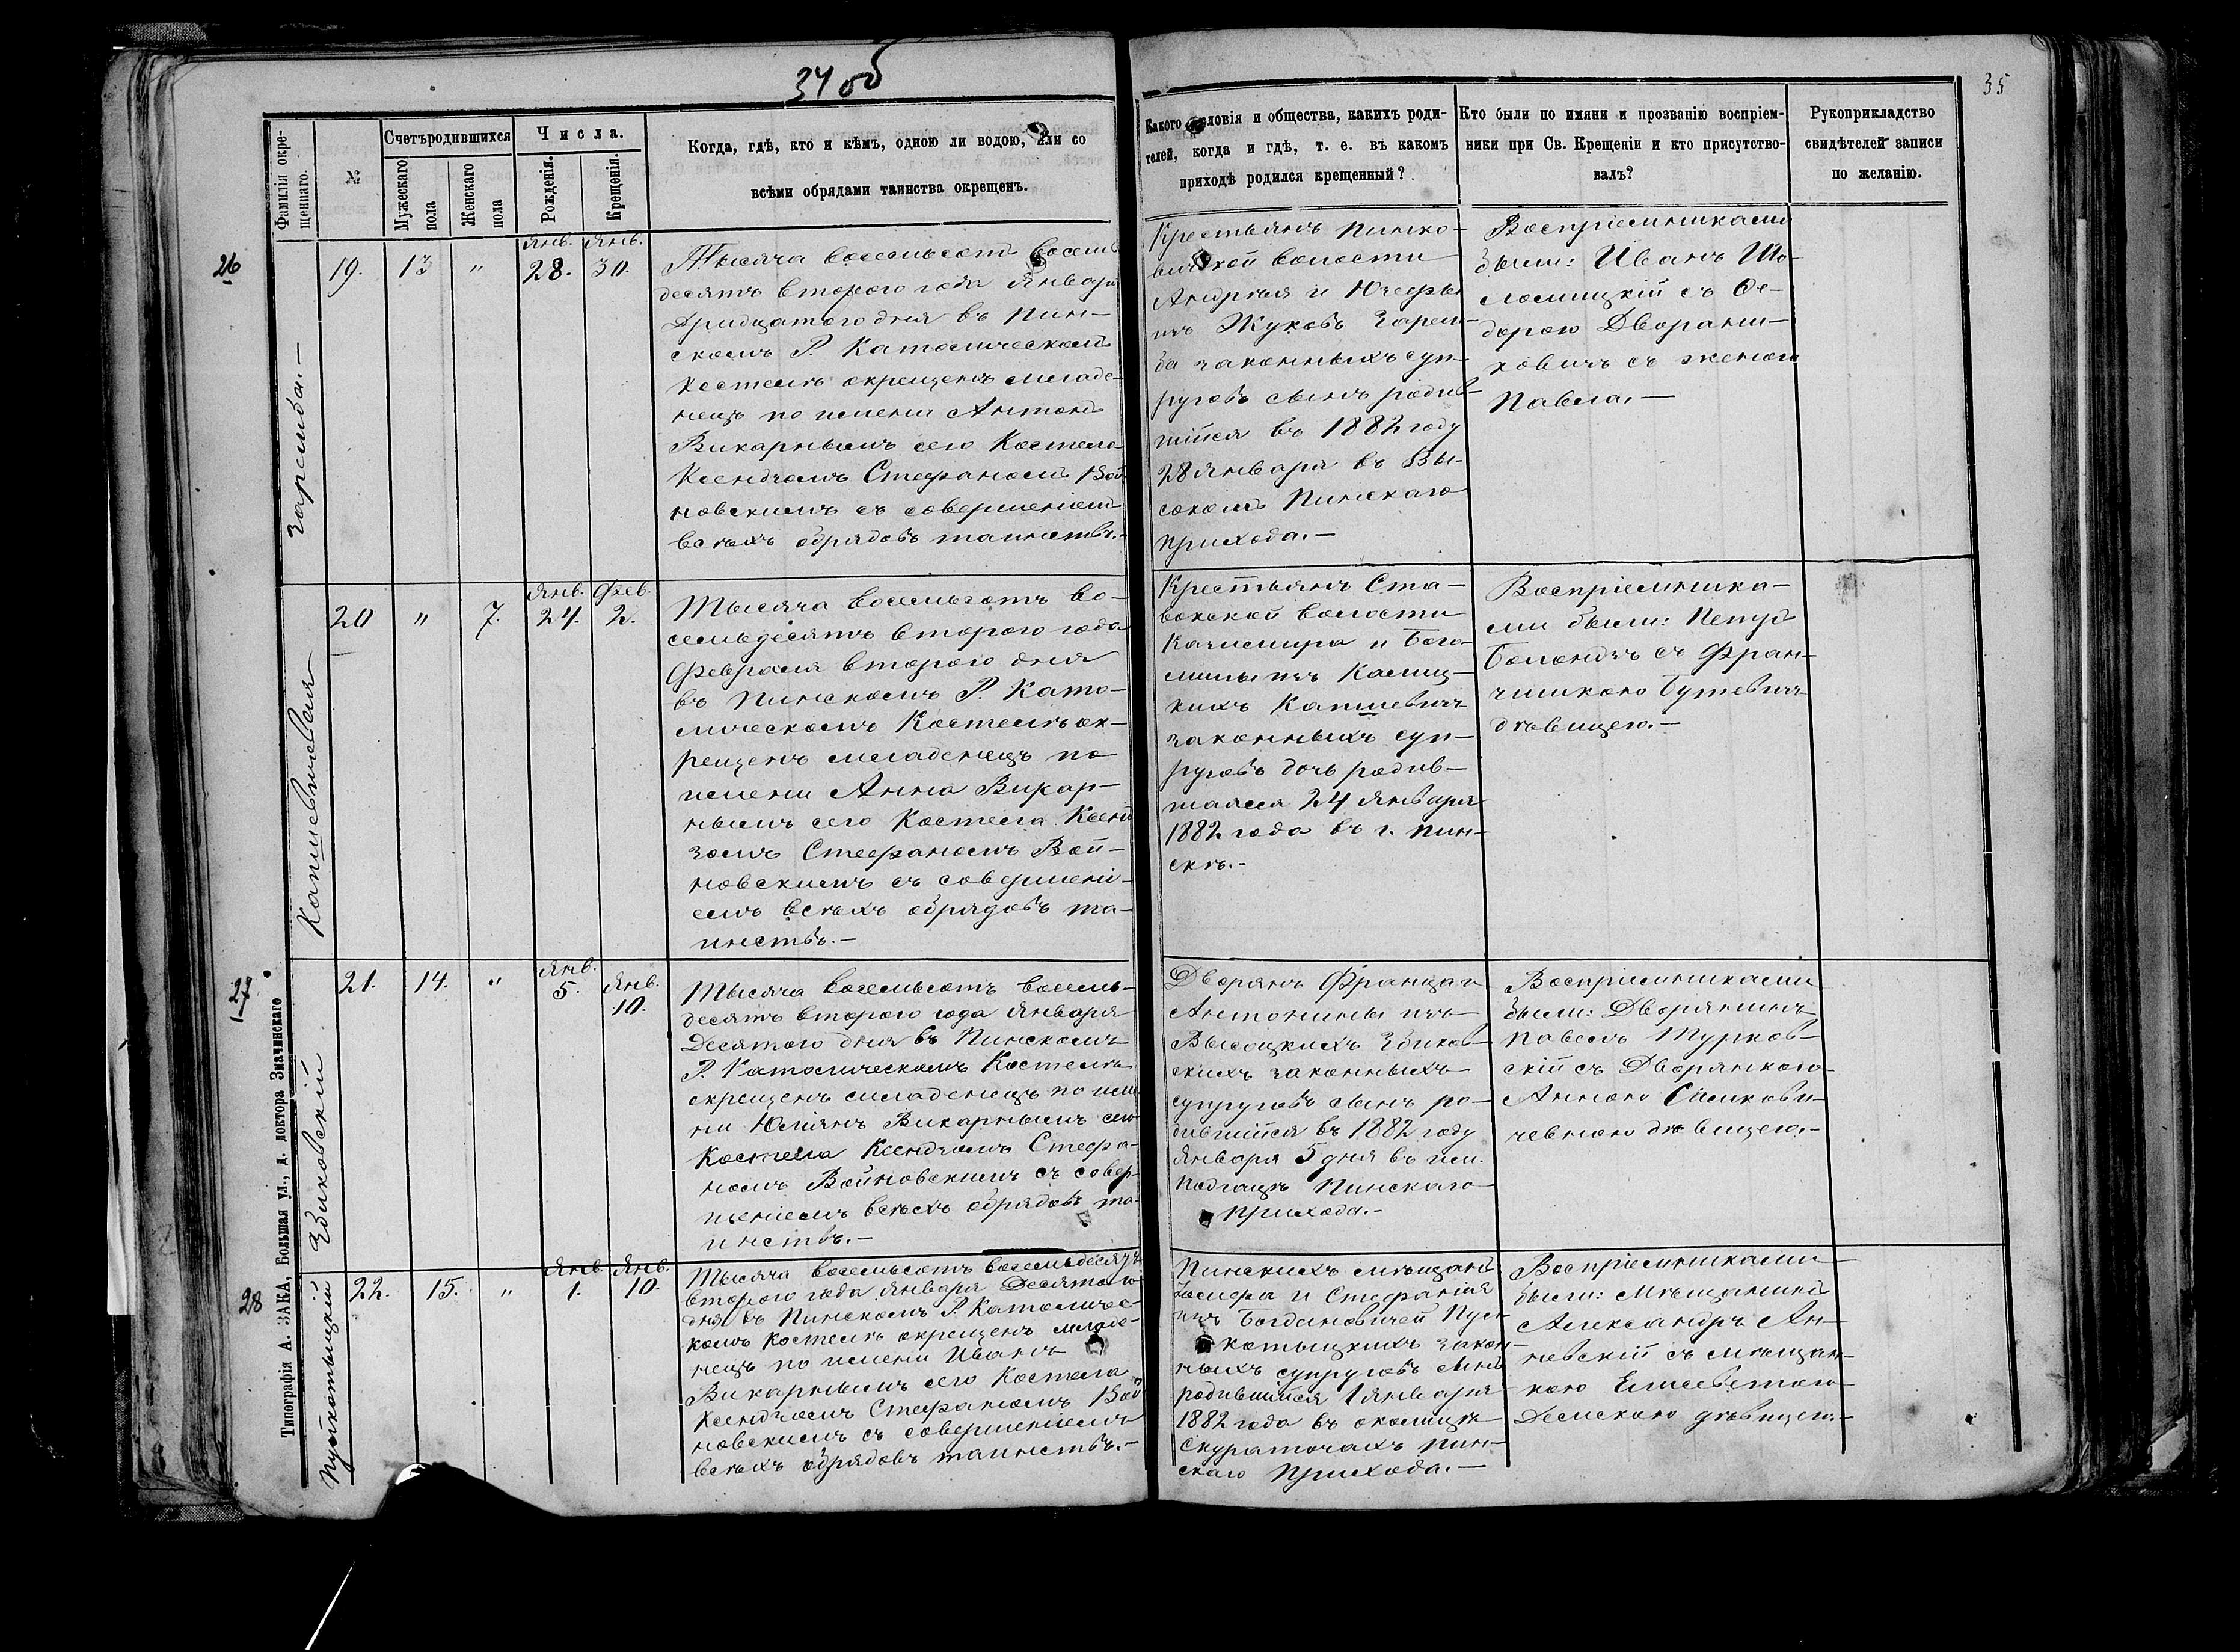 34 об
35
Фамилія окре-
щеннаго.
№
Счетъ родившихся
Мужескаго
пола
Женскаго
пола
Числа.
Рожденія.
Крещенія.
Когда, гдѣ, кто и кѣмъ, одною ли водою, или со
всѣми обрядами таинства окрещенъ.
Какого сословія и общества, какихъ роди-
телей, когда и гдѣ, т. е. въ какомъ
приходѣ родился крещенный?
Кто были по имяни и прозванію воспріем-
ники при Св. Крещеніи и кто присутство-
валъ?
Рукоприкладство
свидѣтелей записи
по желанію.
26
Заремба.—
19.
13
"
Янв.
28.
Янв.
30.
Тысяча восемьсотъ восемь
десятъ второго года Января
Тридцатого дня въ Пин-
скомъ Р. Католическомъ
Костелѣ окрещенъ младе-
нецъ по имени Антонъ
Викарнымъ сего Костела
Ксендзомъ Стефаномъ Вой-
новскимъ съ совершеніемъ
всѣхъ обрядовъ таинствъ.—
Крестьянъ Пинко-
вичской волости
Андрея и Юзефы
изъ Жуковъ Зарем-
ба законныхъ суп-
руговъ сынъ родив-
шійся въ 1882 году
28 Января въ Вы-
сокомъ Пинскаго
прихода.—
Воспріемниками
были: Иванъ Шо-
ломицкій съ Фе-
дорою Дворани-
ковичъ съ женою
Павла.—
Капшевичовая
20
"
7.
Янв.
24.
Фев.
2.
Тысяча восемьсотъ во-
семьдесятъ второго года
Февраля второго дня
въ Пинскомъ Р. Като-
лическомъ Костелѣ ок-
рещенъ младенецъ по
имени Анна Викар-
нымъ сего Костела Ксенд
зомъ Стефаномъ Вой-
новскимъ съ совершені-
емъ всѣхъ обрядовъ та-
инствъ.—
Крестьянъ Ста-
вокской волости
Казимира и Бого-
милы изъ
Капшевичъ
законныхъ суп-
руговъ дочь родив-
шаяся 24 Января
1882 года въ г. Пин-
скѣ.—
Воспріемника-
ми были: Петръ
Болондзъ съ Фран-
цишкою Бутевичъ
дѣвицею.—
27
Здиковскій
21.
14.
"
Янв.
5.
Янв.
10.
Тысяча восемьсотъ восемь-
десятъ второго года Января
Десятого дня въ Пинскомъ
Р. Католическомъ Костелѣ
окрещенъ младенецъ по име
ни Юліянъ Викарнымъ сего
Костела Ксендзомъ Стефа-
номъ Войновскимъ съ совер-
шеніемъ всѣхъ обрядовъ та-
инствъ.—
Дворянъ Франца и
Антонины изъ
Высоцкихъ Здиков-
скихъ законныхъ
супруговъ сынъ ро-
дившійся въ 1882 году
Января 5 дня въ им.
Пинскаго
прихода.—
Воспріемниками
были: Дворянинъ
Павелъ Турков-
скій съ Дворянкою
Анною
чевною дѣвицею.—
28
Пусткотыцкій
22.
15.
"
Янв.
1.
Янв.
10.
Тысяча восемьсотъ восемьдесятъ
второго года Января Десятого
дня въ Пинскомъ Р. Католичес-
комъ Костелѣ окрещенъ младе-
нецъ по имени Иванъ
Викарнымъ сего Костела
Ксендзомъ Стефаномъ Вой
новскимъ съ совершеніемъ
всѣхъ обрядовъ таинствъ.—
Пинскихъ мѣщанъ
и Стефаніи
изъ Богдановичей Пуст
котыцкихъ закон-
ныхъ супруговъ сынъ
родившійся 1 Января
1882 года въ околицѣ
Скураточахъ Пин-
скаго прихода.—
Воспріемниками
были: Мѣщанинъ
Александръ Ян-
невскій съ мѣщан-
кою Елисаветою
Демскою дѣвицею.—
Типографія А. ЗАКА, Большая ул., д. доктора Значинскаго